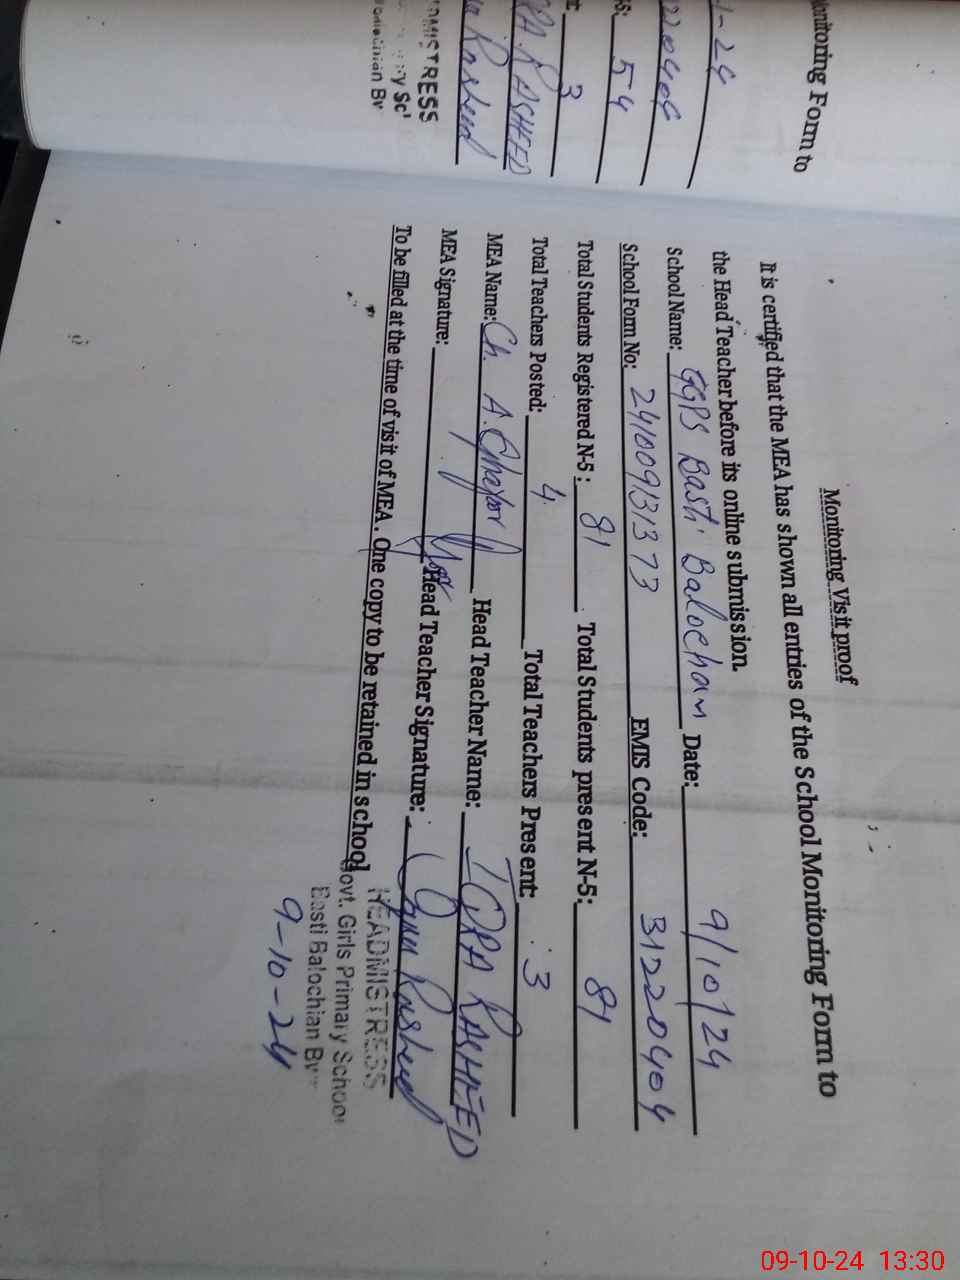 Monitoring Visit proof
It is certified that the MEA has shown all entries of the School Monitoring Form to
the Head Teacher before its online submission.
School Name: GGPS Basti Balocham Date: 9/10/24
School Form No: 241009131373 EMIS Code: 31220404
Total Students Registered N-5: 81 Total Students present N-5: 81
Total Teachers Posted: 4 Total Teachers Present: 3
MEA Name: Ch. A. Ghafoor Head Teacher Name: IQRA RASHEED
MEA Signature: Head Teacher Signature: Iqra Rasheed
To be filled at the time of visit of MEA. One copy to be retained in school
HEADMISTRESS
Govt. Girls Primary School
Basti Balochian
9-10-24
onitoring Form to
1-24
220404
-5: 54
t: 3
RA RASHEED
Rasheed
DMISTRESS
09-10-24 13:30